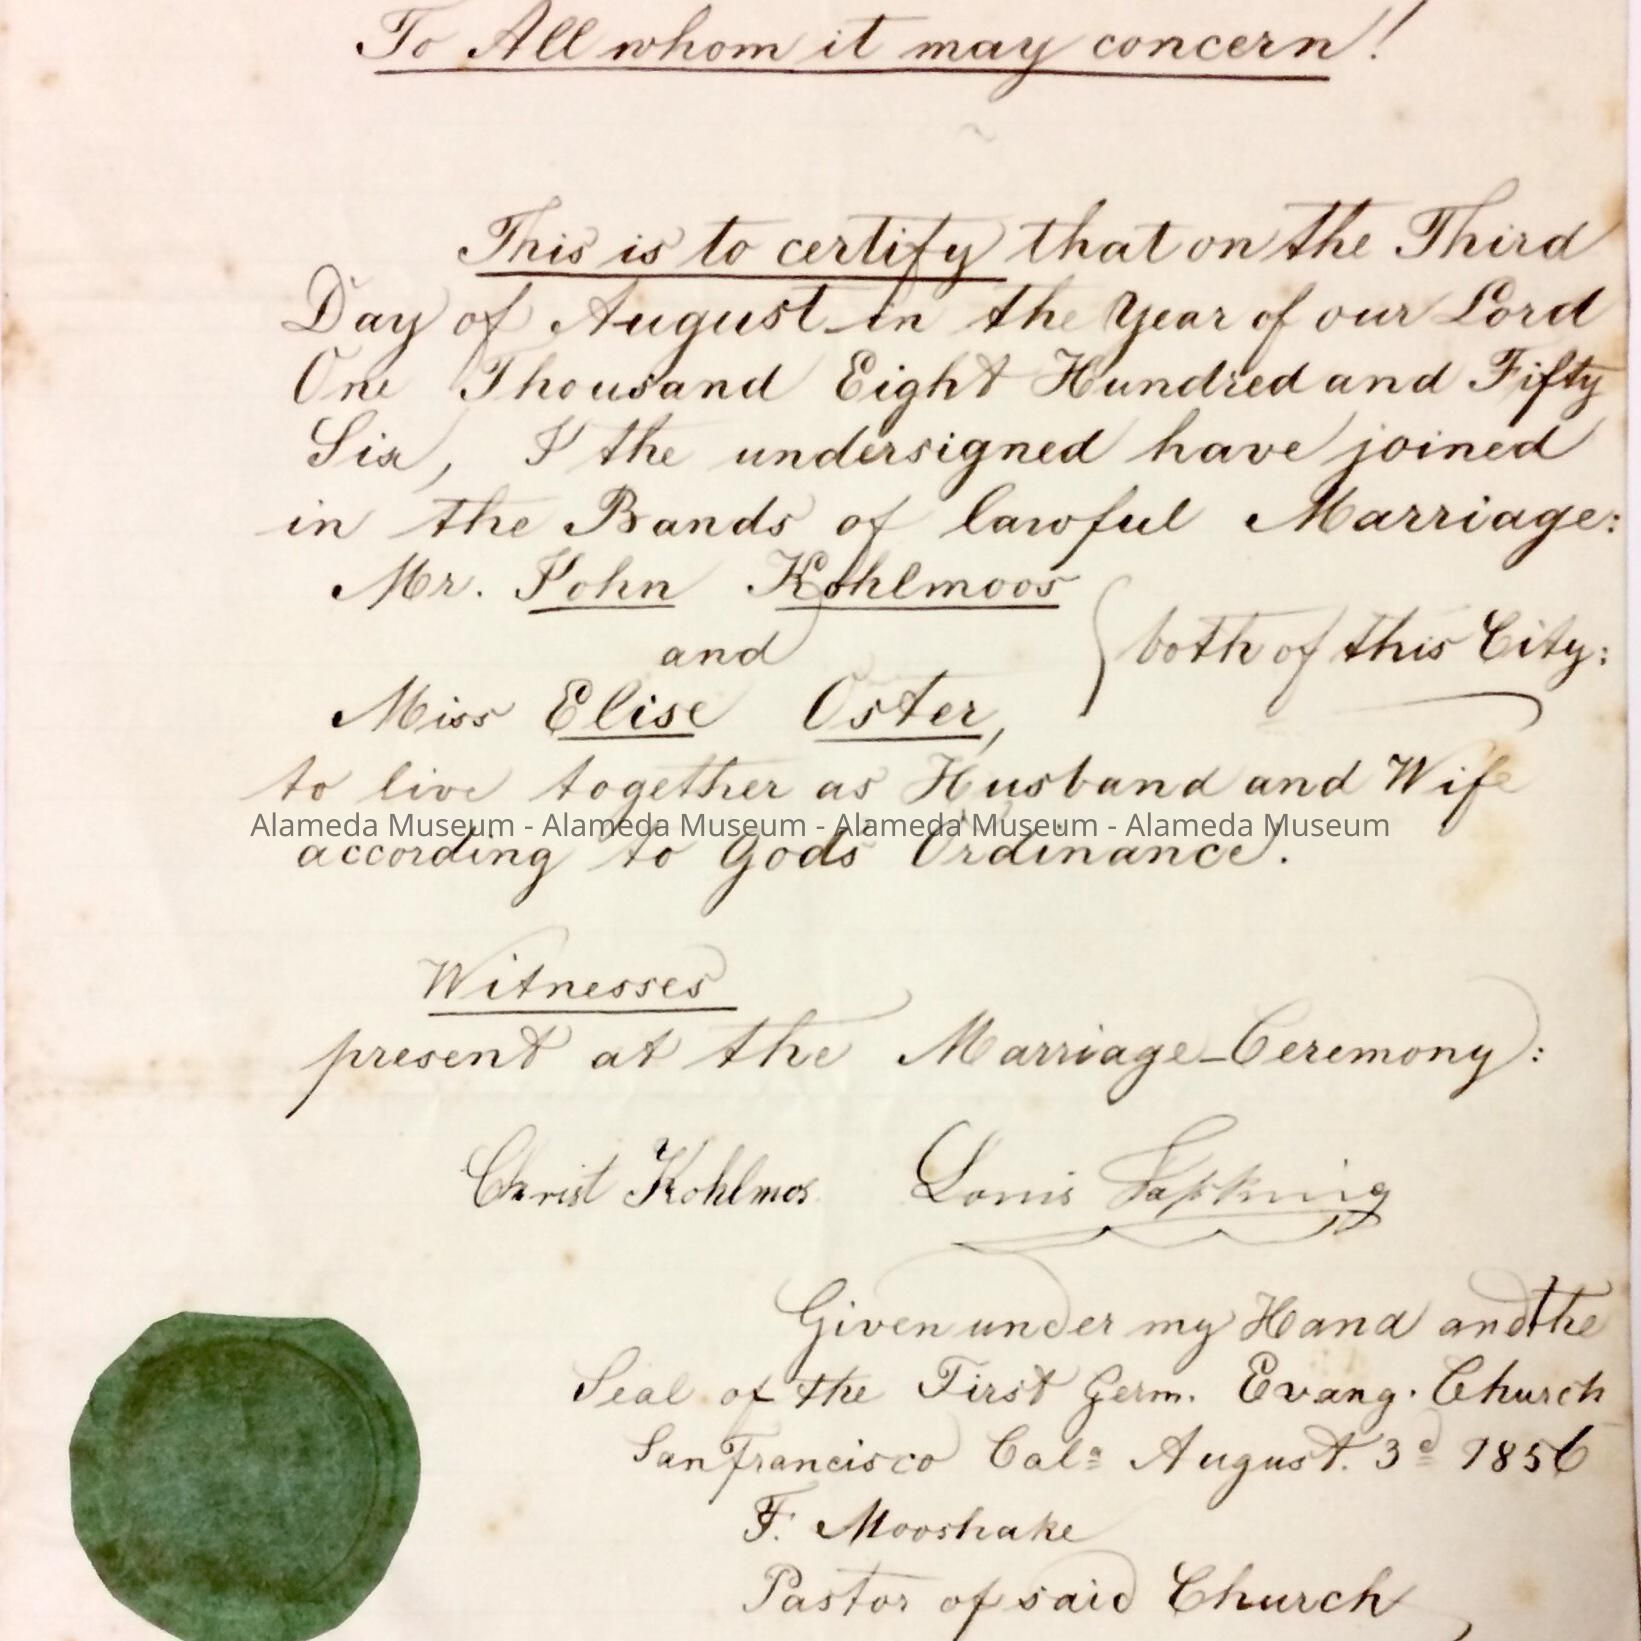 To All whom it may concern!
This is to certify that on the Third
Day of August in the Year of our Lord
One Thousand Eight Hundred and Fifty
Six, I the undersigned have joined
in the Bands of lawful Marriage:
Mr. John Kohlmoos
and
both of this City:
Miss Elise Oster,
to live together as Husband and Wife
Alameda Museum - Alameda Museum - Alameda Museum - Alameda Museum
according to Gods Ordinance.
Witnesses
present at the Marriage-Ceremony:
Christ Kohlmos Louis
Given under my Hand and the
Seal of the First Germ. Evang. Church
San Francisco Cala August. 3d 1856
F. Mooshake
Pastor of said Church